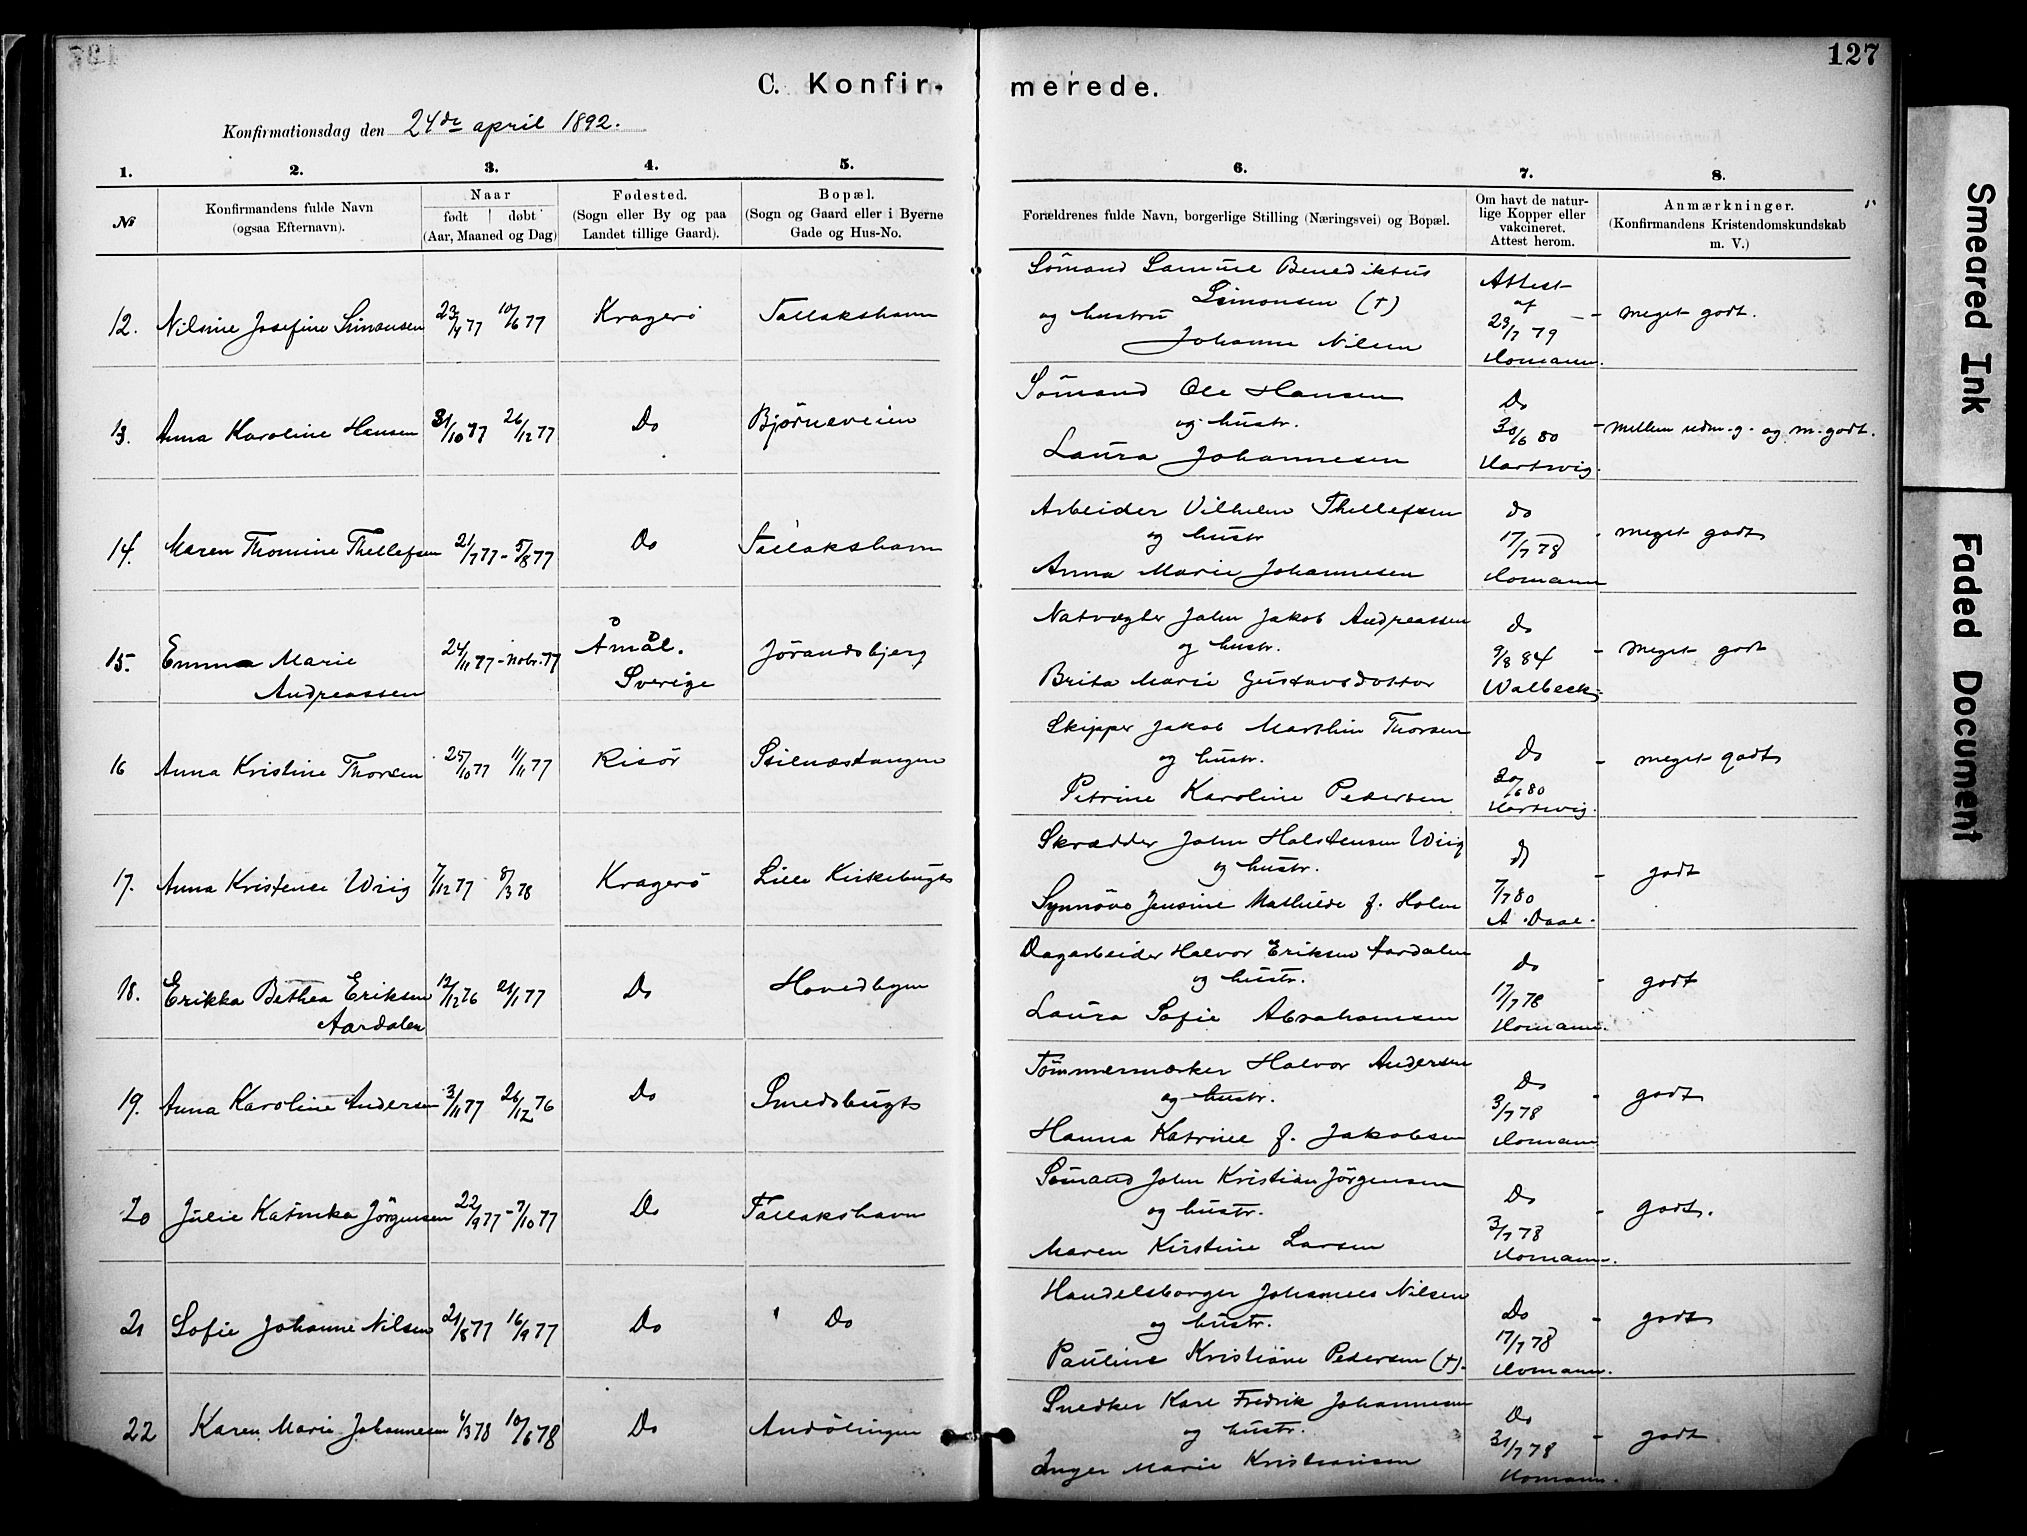 127
C. Konfir-merede.
Konfirmationsdag den 24de april 1892.
1. 2. 3. 4. 5. 6. 7. 8.
№
Konfirmandens fulde Navn
(ogsaa Efternavn).
Naar
født døbt
(Aar, Maaned og Dag)
Fødested.
(Sogn eller By og paa
Landet tillige Gaard).
Bopæl.
(Sogn og Gaard eller i Byerne
Gade og Hus-No.
Forældrenes fulde Navn, borgerlige Stilling (Næringsvei) og Bopæl.
Om havt de natur-
lige Kopper eller
vakcineret.
Attest herom.
Anmærkninger.
(Konfirmandens Kristendomskundskab
m. V.)
12. Nilsine Josefine Simonsen 23/4 77 10/6 77 Kragerö Tallakshavn
Sömand Samuel Benediktus
Simonsen (†)
og hustru
Johanne Nilsen
Attest
af
23/7 79
Homann.
- meget godt.
13. Anna Karoline Hansen 31/10 77 26/12 77 Do Bjørneveien
Sömand Ole Hansen
og hustr.
Laura Johannesen
Do
30/6 80
Hartwig.
- mellem udm. g. og m. godt.
14. Maren Thomine Thellefsen 21/7 77 - 5/8 77 Do Tallakshavn
Arbeider Vilhelm Thellefsen
og hustr
Anna Marie Johannesen
do
17/7 78
Homann
- meget godt
15. Emma Marie
Andreassen
24/11 77 - nobr. 77
Åmål.
Sverige
Jørandsbjerg
Natvægter John Jakob Andreassen
og hustr.
Brita Marie Gustavsdotter
Do
9/8 84
Walbeck.
- meget godt
16 Anna Kristine Thorsen 25/10 77 11/11 77 Risör Stilnæstangen
Skipper Jakob Marthin Thorsen
og hustr.
Petrine Karoline Pedersen
Do
30/6 80
Hartwig.
- meget godt
17. Anna Kristense Wiig 7/12 77 8/3 78 Kragerö Lille Kirkebugt
Skrædder John Holstensen Wiig
og hustr.
Synnöve Jensine Mathilde f. Holm
do
7/7 80
A. Daae.
- godt
18. Erikka Bethea Eriksen
Aardalen
12/12 76 21/1 77 Do Hovedbyen
Dagarbeider Halvor Eriksen Aardalen
og hustr.
Laura Sofie Abrahamsen
Do
17/7 78
Homann.
- godt
19. Anna Karoline Andersen 3/11 77 26/12 76 Do Smedsbugt
Tömmermærker Halvor Andersen
og hustr.
Hanna Katrine f. Jakobsen
Do
3/7 78
Homann
- godt
20 Julie Katinka Jörgensen 22/9 77 - 7/10 77 Do Tallakshavn
Sömand John Kristian Jörgensen
og hustr.
Maren Kirstine Larsen
Do
3/7 78
Homann.
- godt.
21 Sofie Johanne Nilsen 21/8 77 16/9 77 Do Do
Handelsborger Johannes Nilsen
og hustr.
Pauline Kristiane Pedersen (†).
Do
17/7 78
Homann.
- godt
22 Karen Marie Johannesen 6/3 78 10/6 78 Do Andölingen
Snedker Karl Fredrik Johannesen
og hustr.
Inger Marie Kristiansen
Do
31/7 78
Homann.
- godt
Smeared Ink
Faded Document